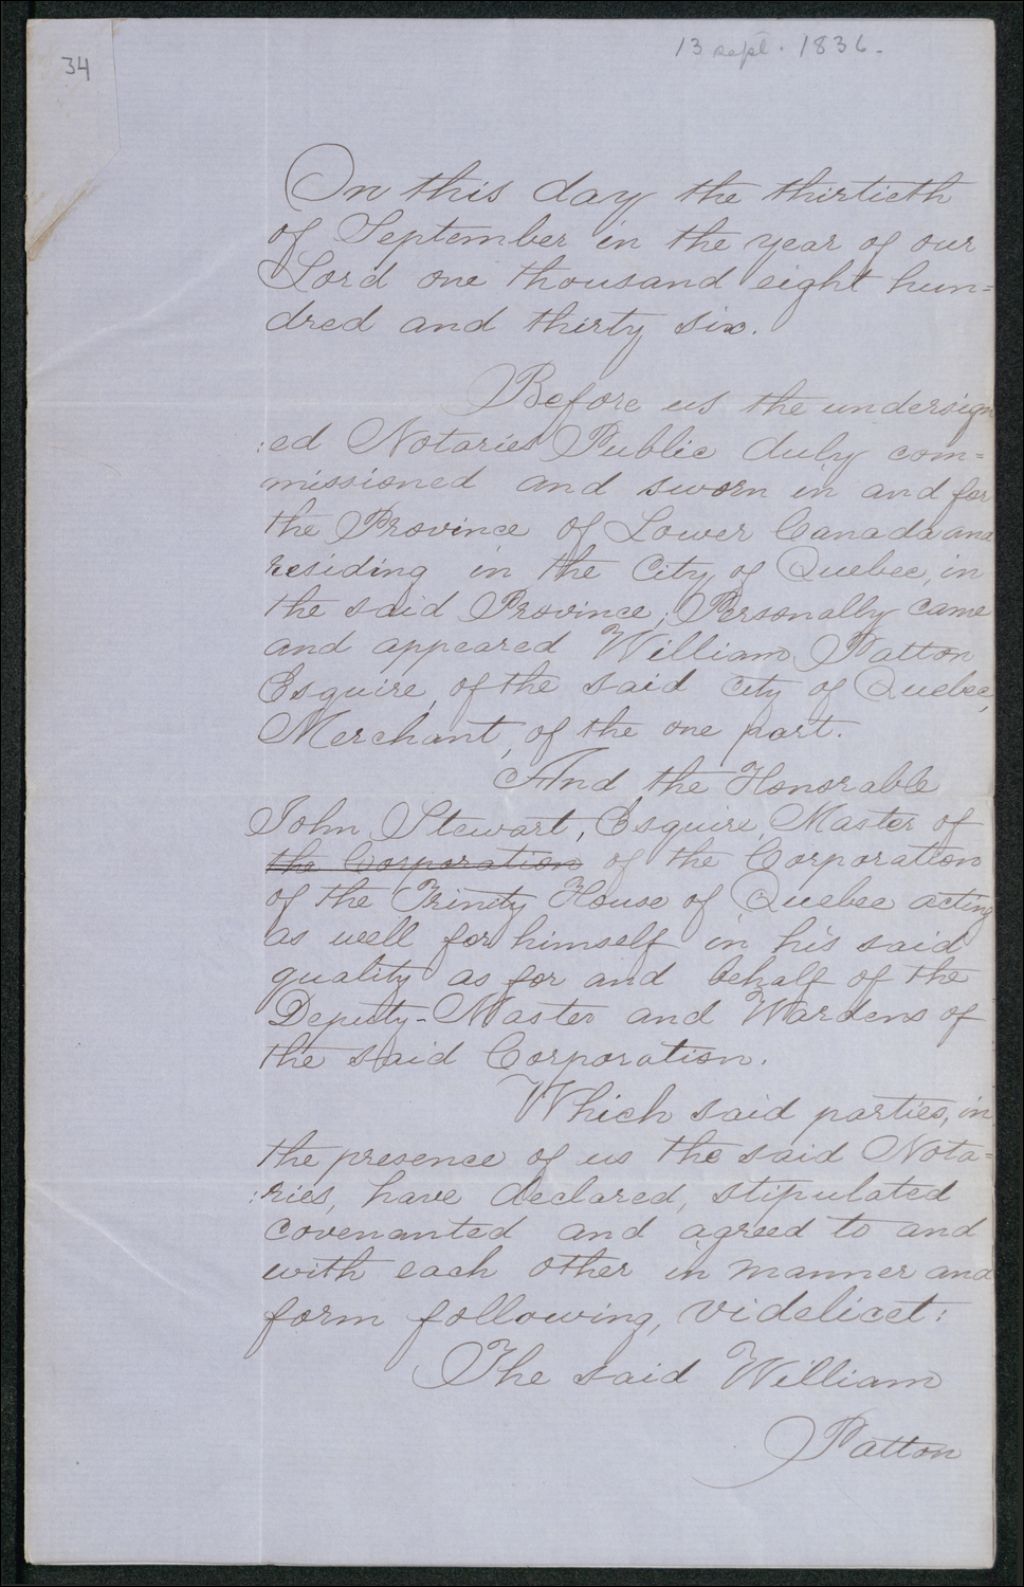 34
13 sept. 1836.
On this day the thirtieth
of September in the year of our
Lord one thousand eight hun=
dred and thirty six.
Before us the undersign
:ed Notaries Public duly com=
missioned and sworn in and for
the Province of Lower Canada and
residing in the City of Quebec, in
the said Province; Personally came
and appeared William Patton
Esquire, of the said city of Quebec,
Merchant, of the one part.
And the Honorable
John Stewart, Esquire, Master of
the Corporation of the Corporation
of the Trinity House of Quebec acting
as well for himself in his said
quality as for and behalf of the
Deputy-Master and Wardens of
the said Corporation.
Which said parties, in
the presence of us the said Nota=
:ries, have declared, stipulated
covenanted and agreed to and
with each other in manner and
form following, videlicet:
The said William
Patton